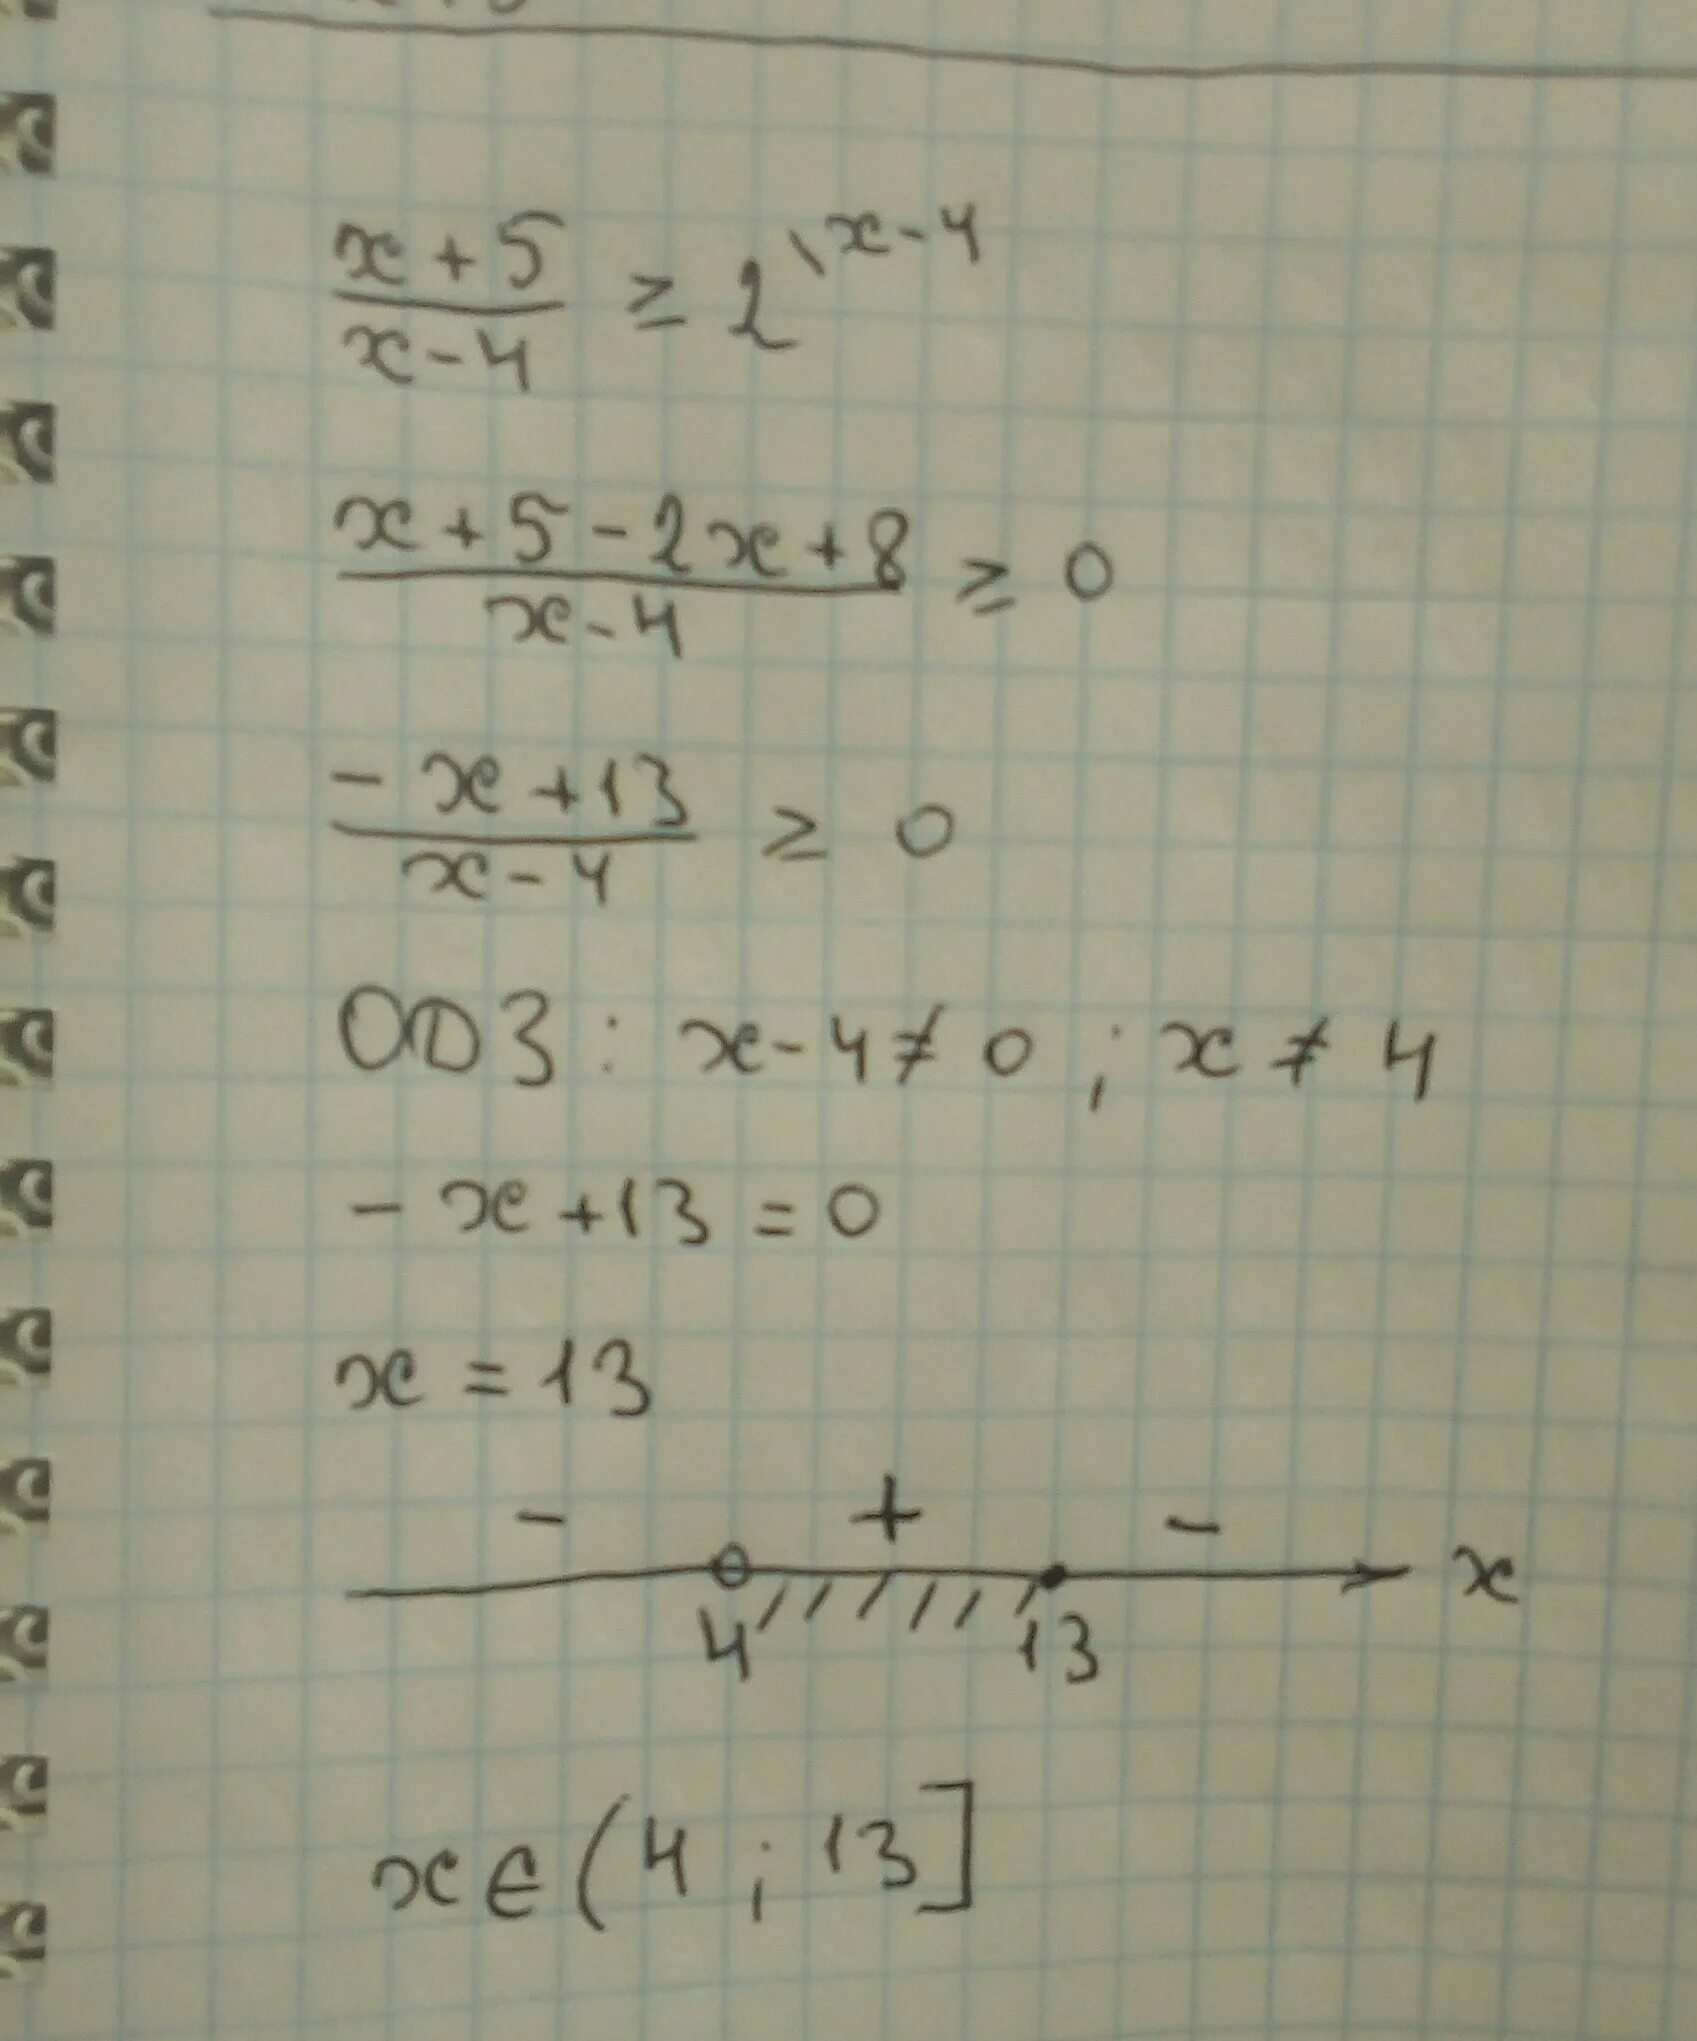 x+5/x-4 ≥ 2\x-4
x+5-2x+8/x-4 ≥ 0
-x+13/x-4 ≥ 0
ОДЗ: x-4≠0; x≠4
-x+13=0
x=13
- + -
4 13 x
x∈(4;13]